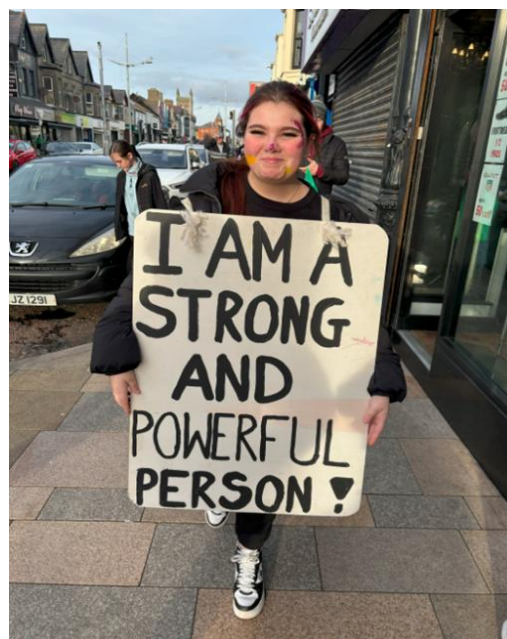 I AM A
STRONG
AND
POWERFUL
PERSON!
JZ 1291
50%